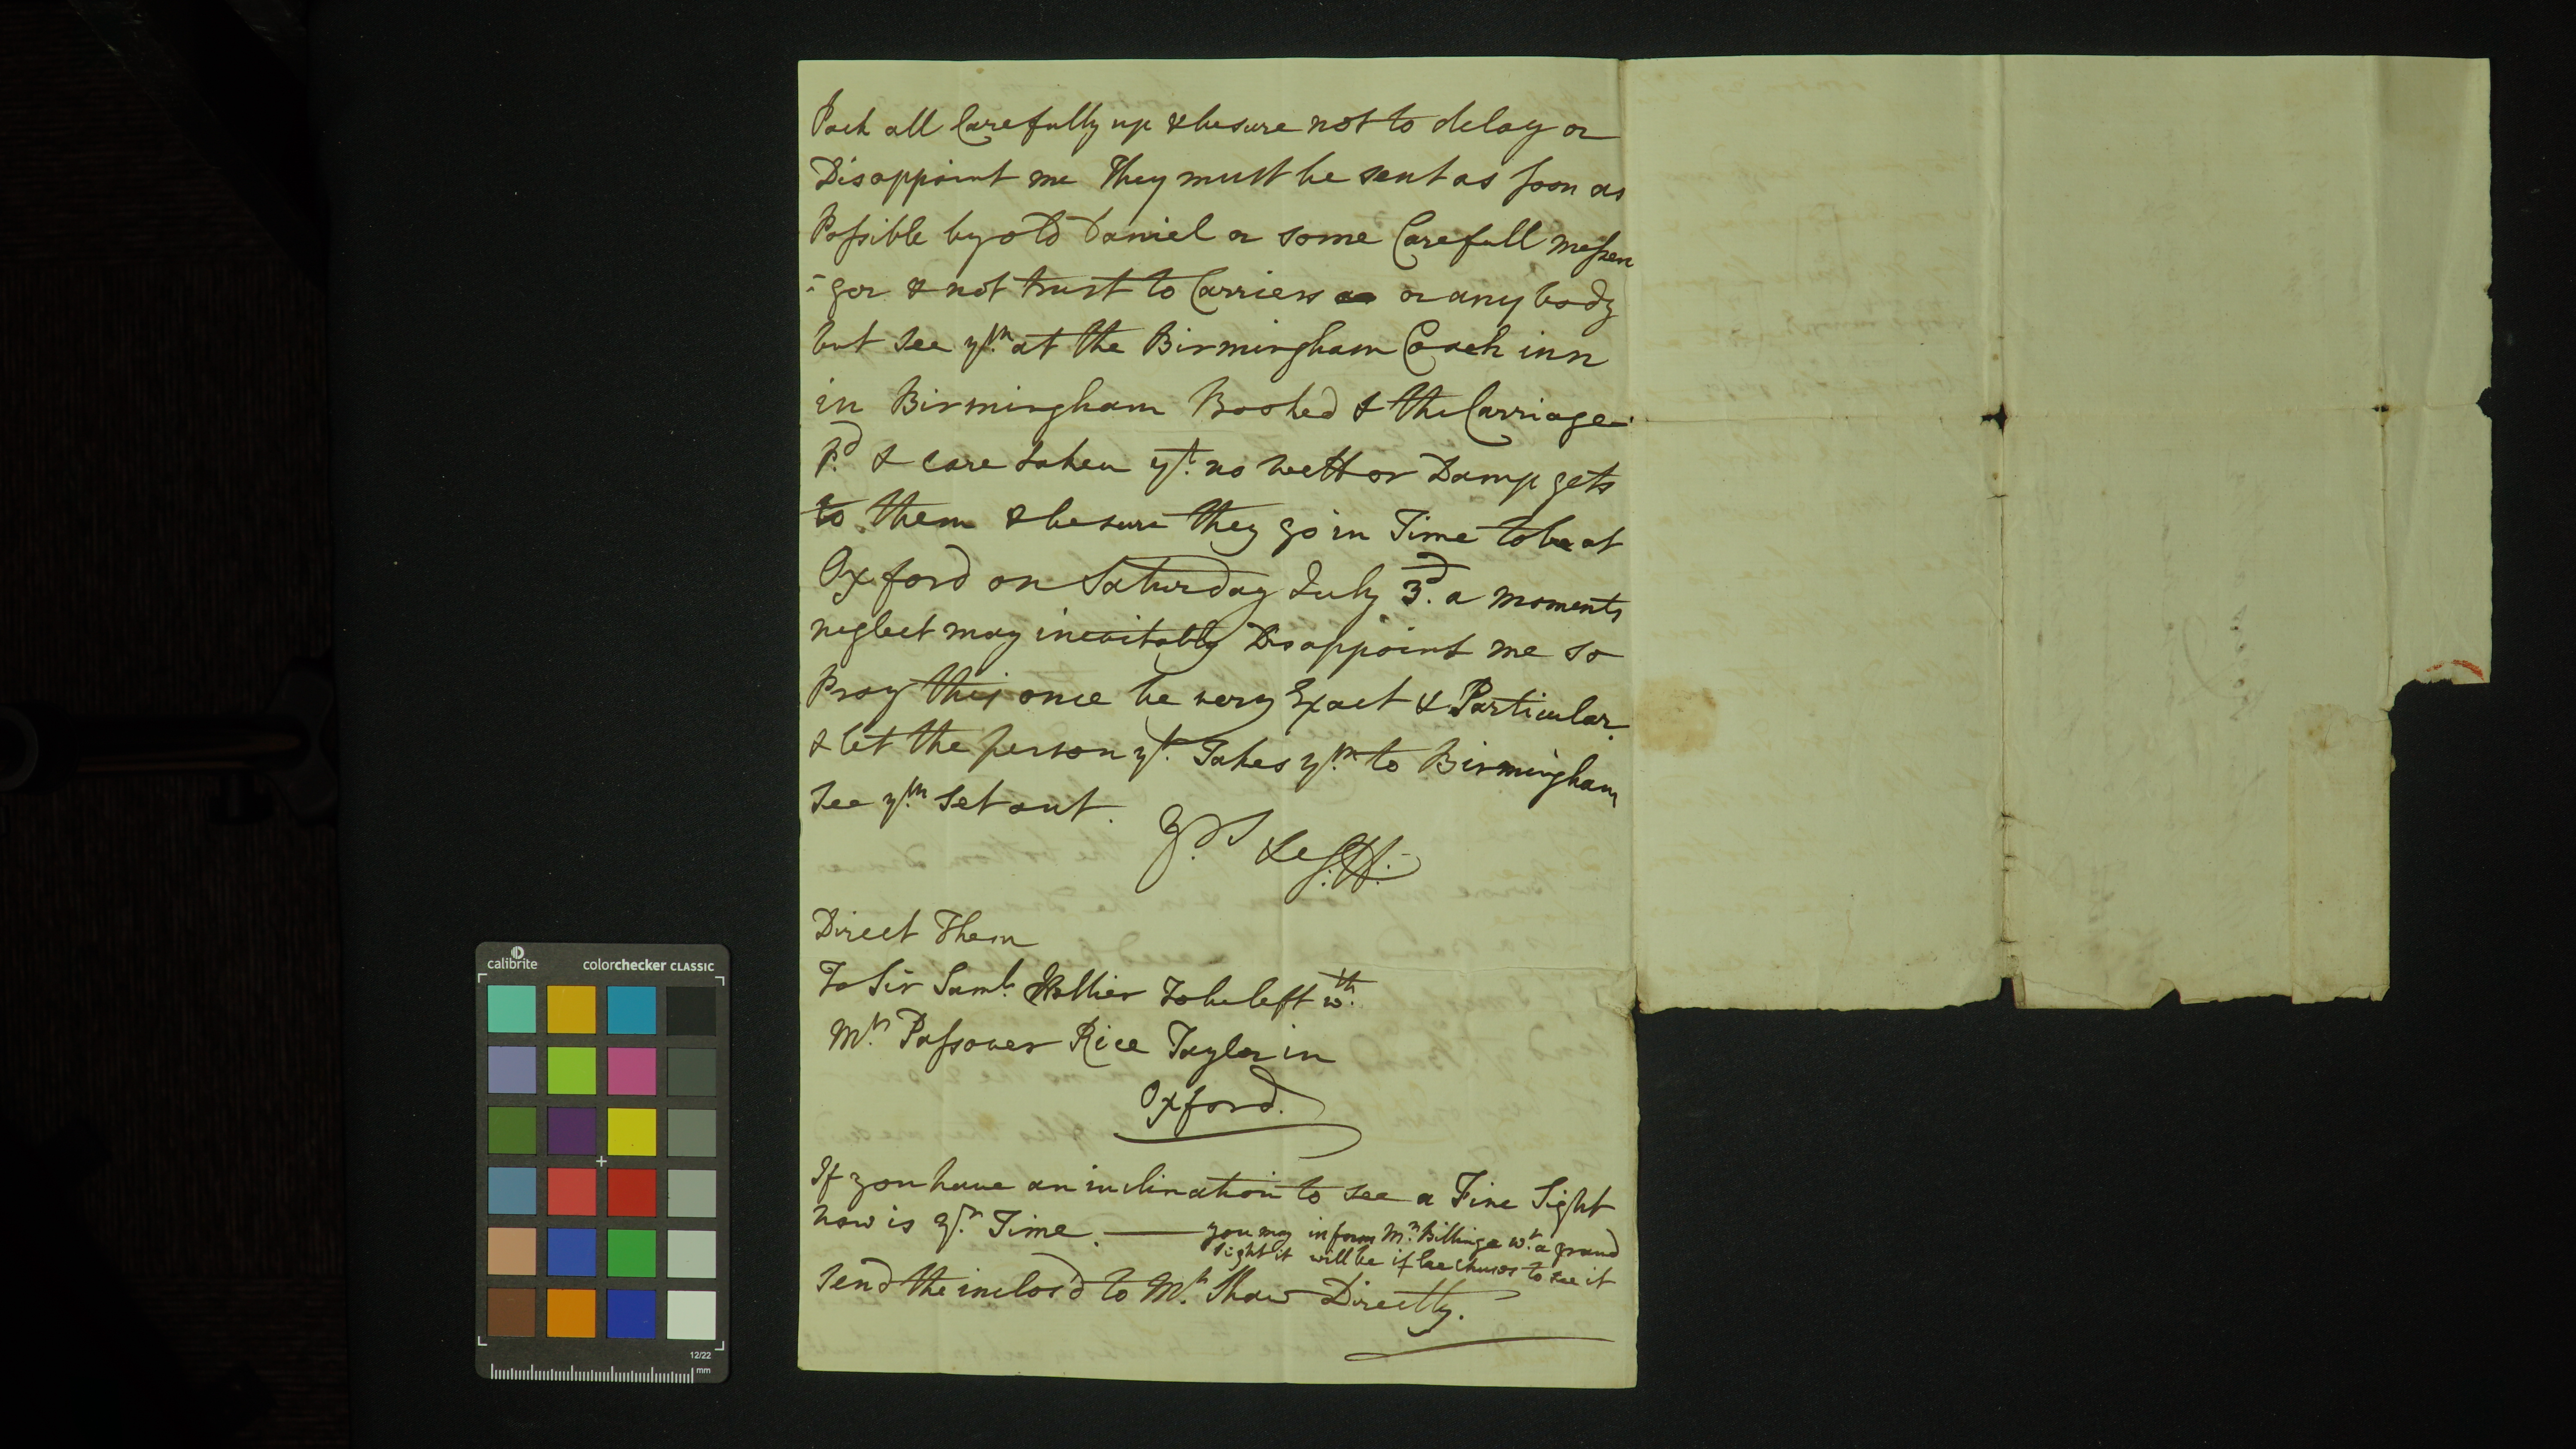 Pack all Carefully up & be sure not to delay or
Disappoint me They must be sent as soon as
Possible by old Daniel or some Carefull messen
-ger & not trust to Carriers or any body
but see ym at the Birmingham Coach inn
in Birmingham Booked & the Carriage
Pd & care taken yt no wett or Damp gets
to them & be sure they go in Time to be at
Oxford on Saturday July 3d. a moments
neglect may inevitably Disappoint me so
Pray this once be very Exact & Particular.
& let the person yt Takes ym to Birmingham
see ym set out.
Yrs &c S:H:
Direct Them
To Sir Saml Hellier to be left wth
Mr Passover Rice Taylor in
Oxford.
If you have an inclination to see a Fine Sight
now is yr Time. — you may inform Mr Billinge wt a grand
sight it will be if he chuses to see it
Send the inclos'd to Mr Shaw Directly.
calibrite
colorchecker CLASSIC
12/22
mm